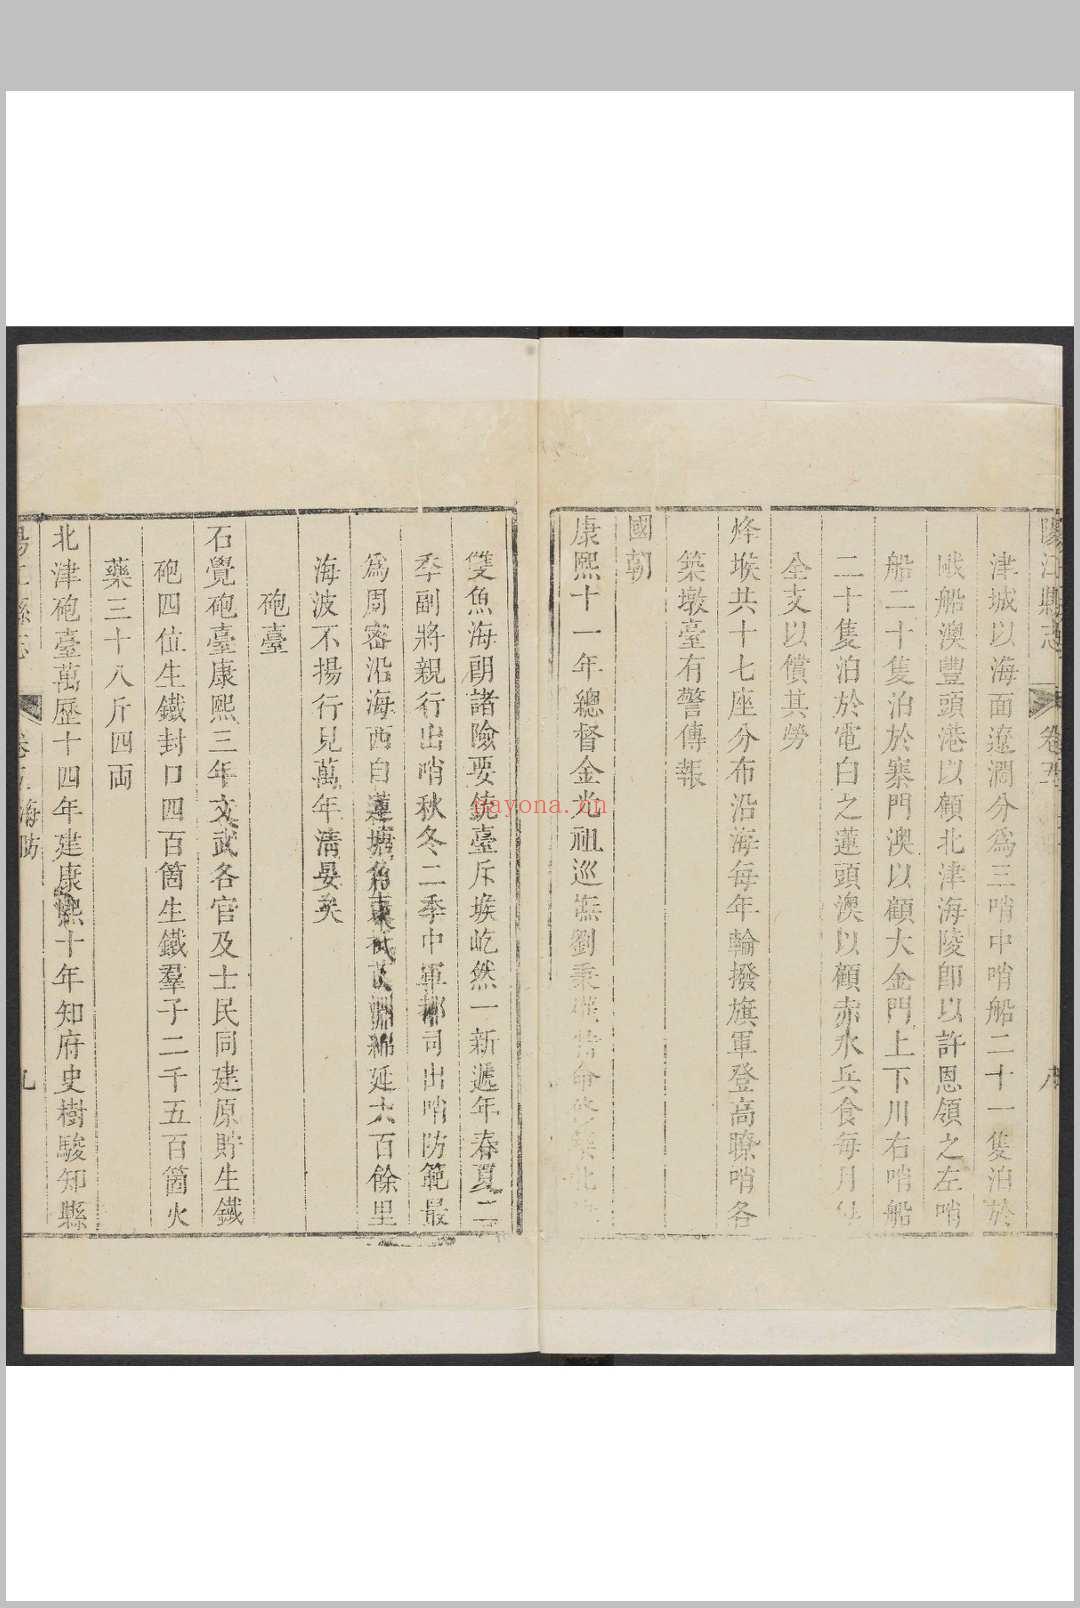 陽江縣志
卷五
津城以海面遼濶分為三哨中哨船二十一隻泊於
戙船澳豐頭港以顧北津海陵即以許恩領之左哨
船二十隻泊於寨門澳以顧大金門上下川右哨船
二十隻泊於電白之蓮頭澳以顧赤水兵食每月
全支以償其勞
烽堠共十七座分布沿海每年輪撥旗軍登高瞭哨各
築墩臺有警傳報
國朝
康熙十一年總督金光祖巡撫劉秉
雙魚海朗諸險要銃臺斥堠屹然一新遞年春夏二
季副將親行出哨秋冬二季中軍都司出哨防範最
為周密沿海西自蓮塘角東延六百餘里
海波不揚行見萬年清晏矣
砲臺
石覺砲臺康熙三年文武各官及士民同建原貯生鐵
砲四位生鐵封口四百箇生鐵羣子二千五百箇火
藥三十八斤四両
北津砲臺萬歷十四年建康熙十年知府史樹駿知縣
陽江縣志
卷五 海防
九
nayona.cn